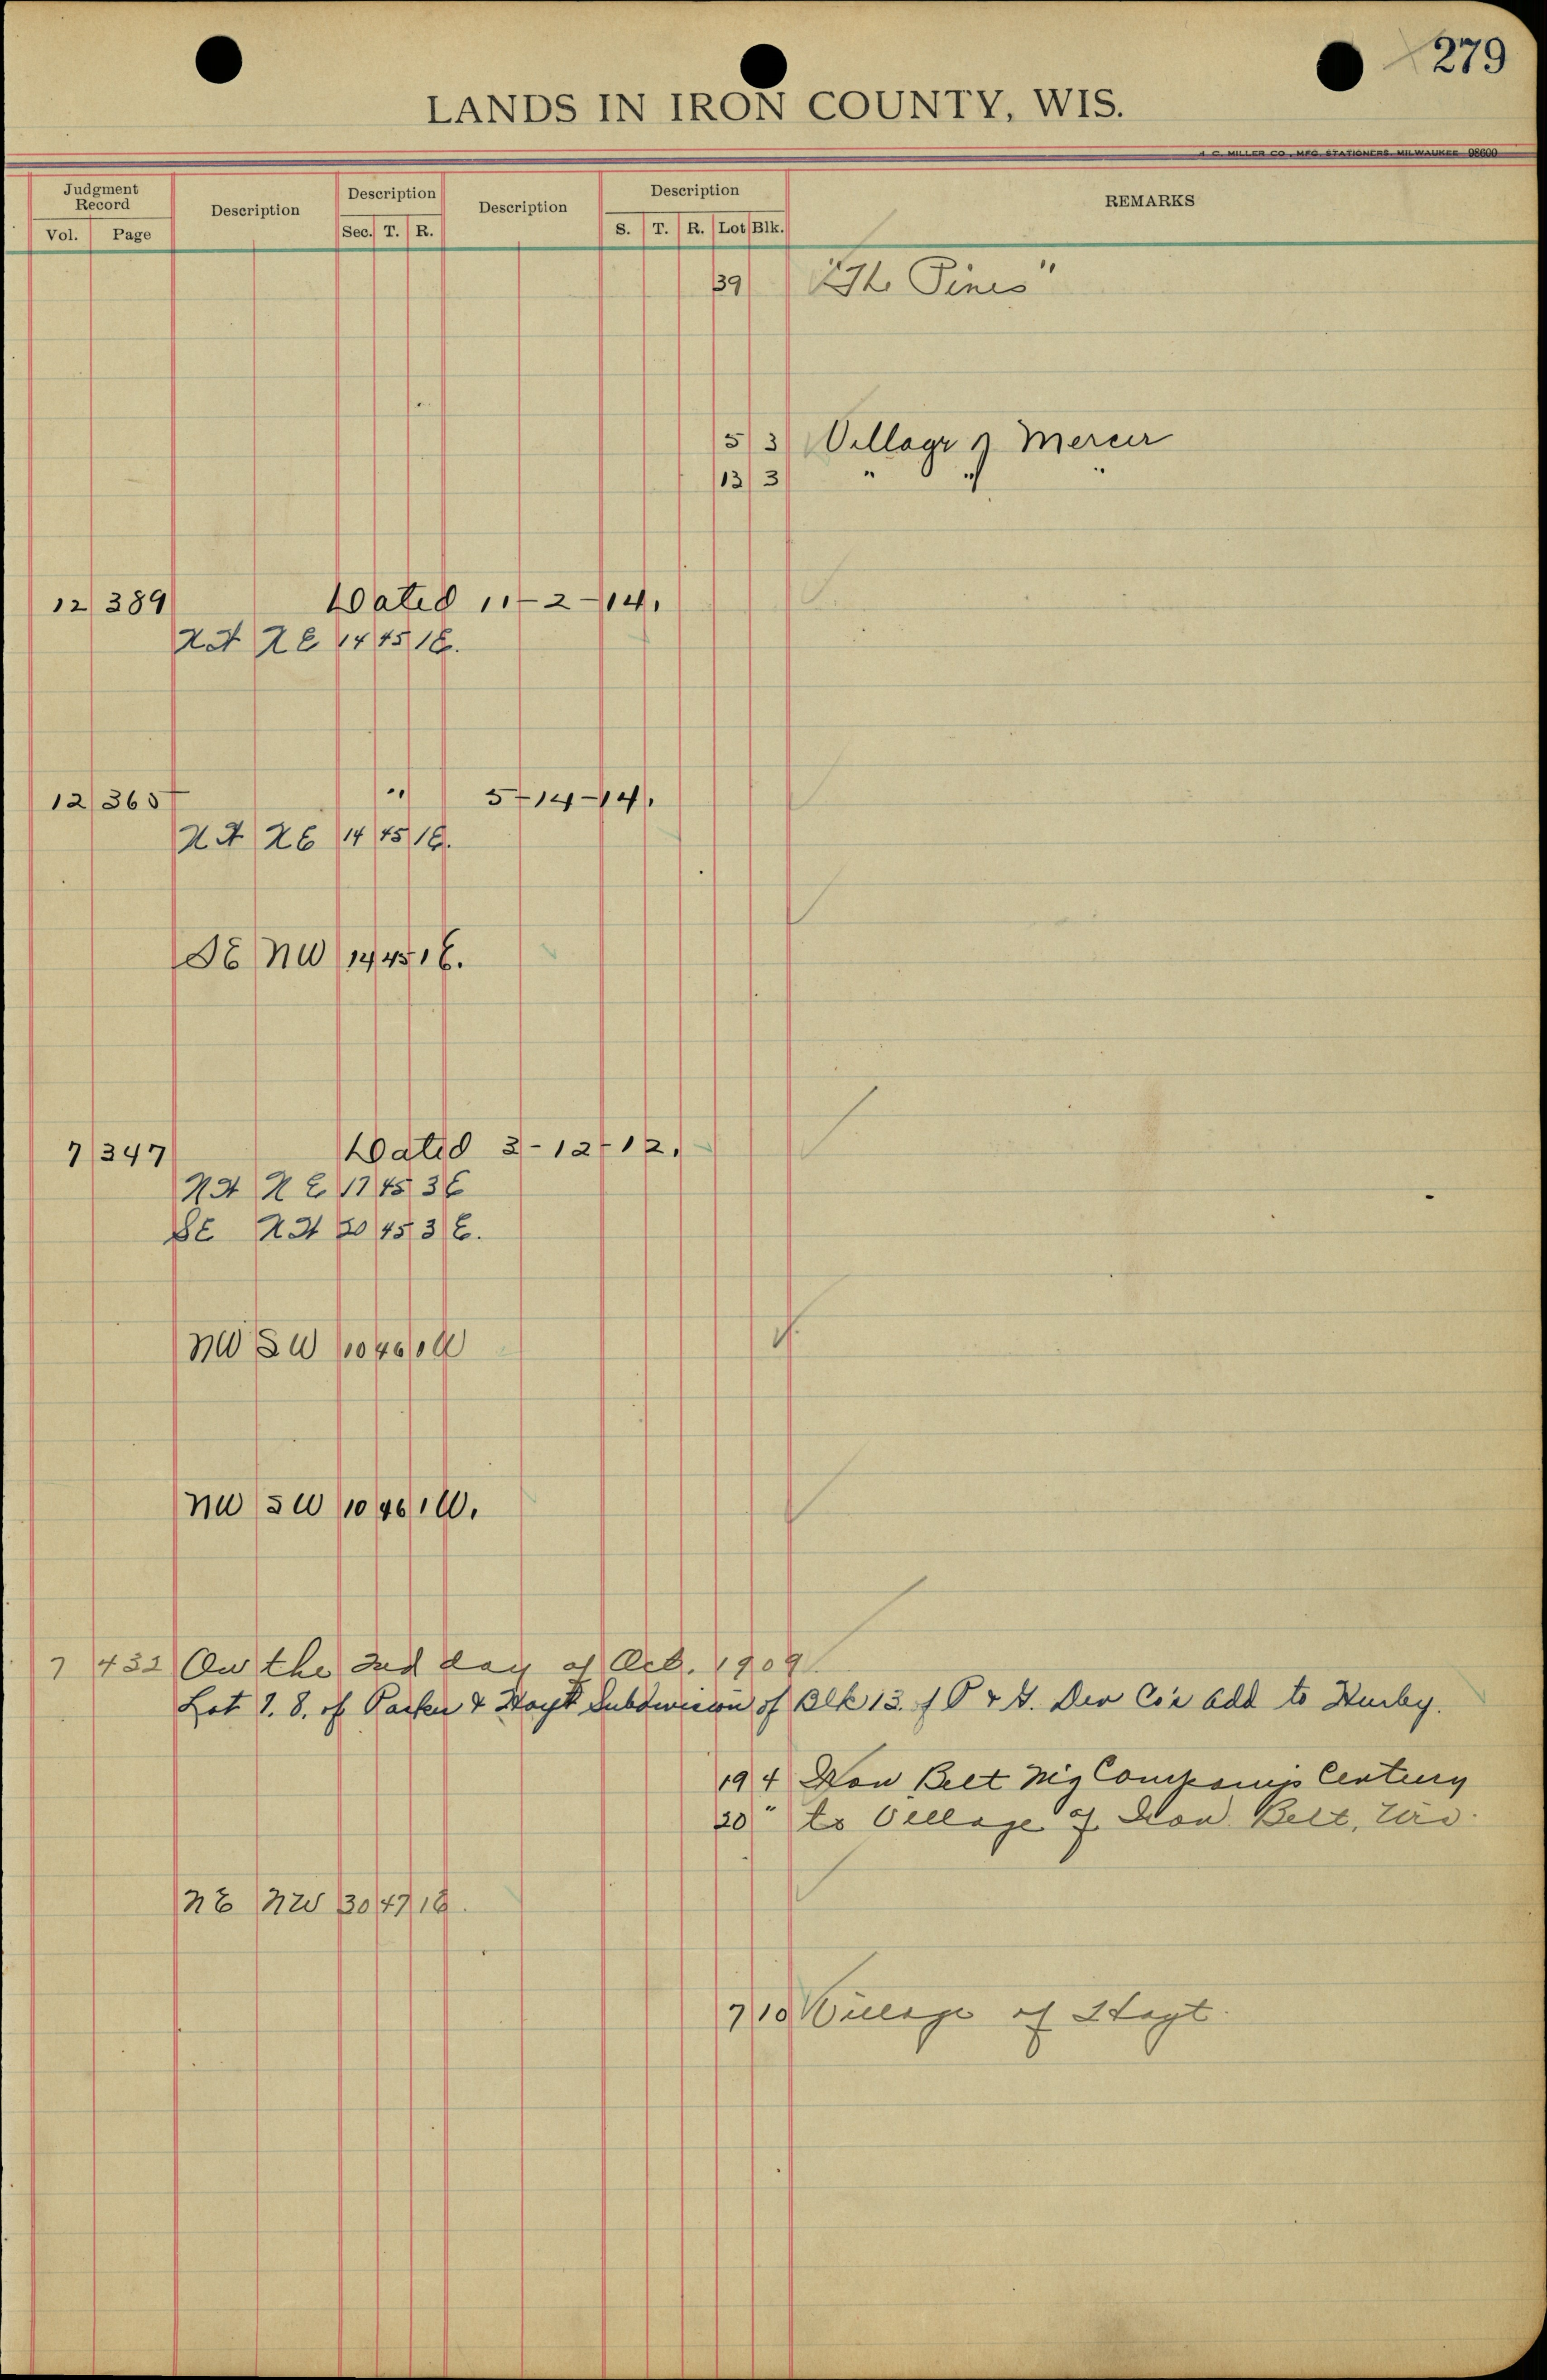 279
LANDS IN IRON COUNTY, WIS.
A. C. MILLER CO., MFG. STATIONERS, MILWAUKEE 98600
Judgment Record Description Description Description Description REMARKS
Vol. Page Sec. T. R. S. T. R. Lot Blk.
39 "The Pines"
5 3 Village of Mercer
13 3 " " "
12 389 Dated 11-2-14.
NE 14 45 1E.
12 365 " 5-14-14.
NE 14 45 1E.
SE NW 14 45 1E.
7 347 Dated 2-12-12.
NE 17 45 3E
SE 20 45 3E.
NW SW 10 46 1W
NW SW 10 46 1W.
7 432 On the 2nd day of Oct. 1909.
Lot 7. 8. of Parker & Hoyt Subdivision of Blk 13. of P & H. Dev Co's Add to Hurley.
19 4 Iron Belt Mg Companys Century
20 " to Village of Iron Belt, Wis.
NE NW 30 47 1E.
7 10 Village of Hoyt.